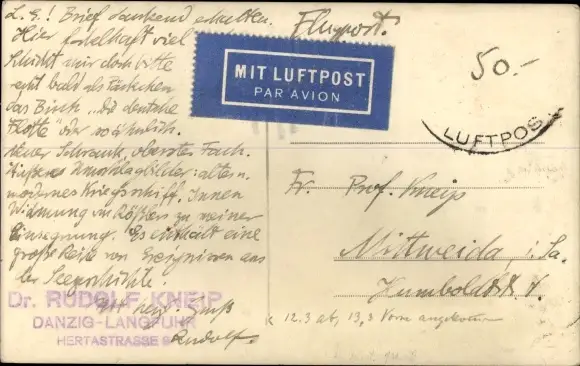 L. E.! Brief dankend erhalten.
Hier fabelhaft viel
Schickt mir doch bitte
recht bald als Päckchen
das Buch "die deutsche
Flotte" oder so ähnlich.
neuer Schrank, oberstes Fach.
Äußeres Umschlagbilder: altem
modernes Kriegsschiff. Innen
Widmung von zu meiner
Einsegnung. Es enthält eine
große Reihe von Ereignissen aus
der Seegeschichte.
Gruß
Rudolf
Dr. RUDOLF KNEIP
DANZIG-LANGFUHR
HERTASTRASSE 9
Flugpost.
MIT LUFTPOST
PAR AVION
50.-
LUFTPOS
Fr. Prof. Kneip
Mittweida, i. Sa.
Humboldtstr.
12.3 ab, 13.3 Vorm angekommen